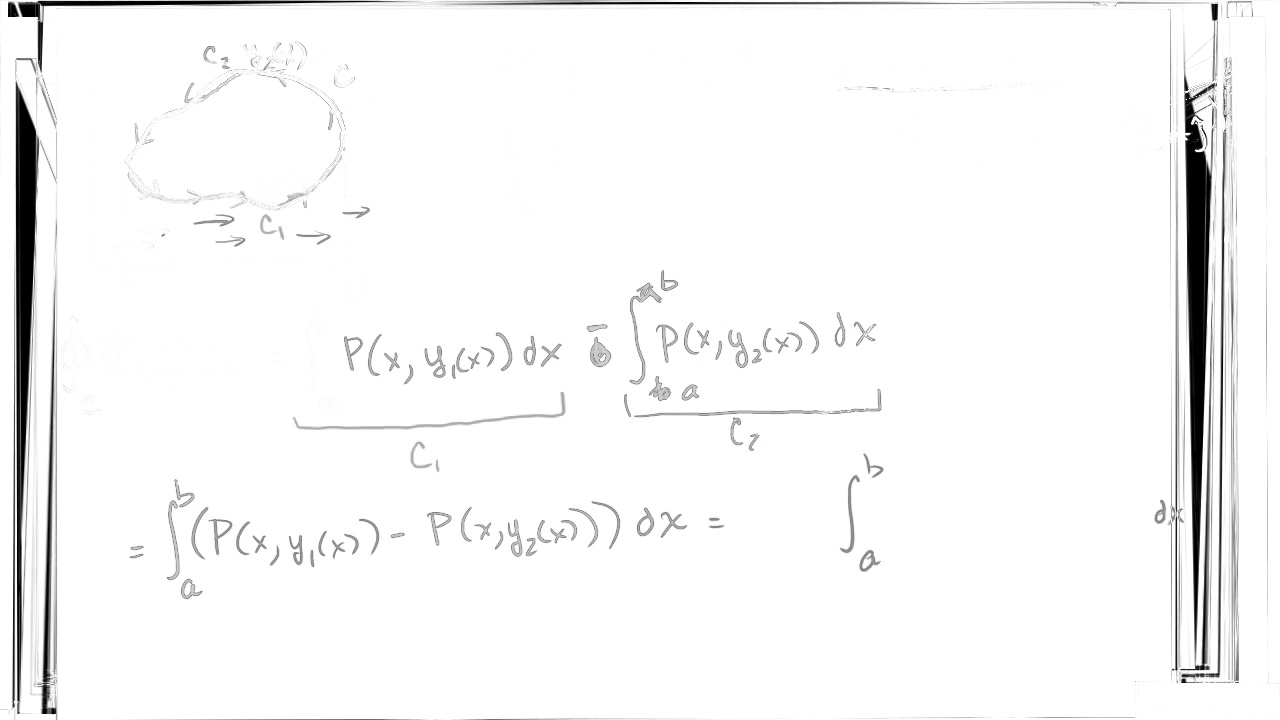 C₂ y₂(x) C
C₁
P(x, y₁(x)) dx - ∫ₐᵇ P(x, y₂(x)) dx
C₁ C₂
= ∫ₐᵇ (P(x, y₁(x)) - P(x, y₂(x))) dx = ∫ₐᵇ dx